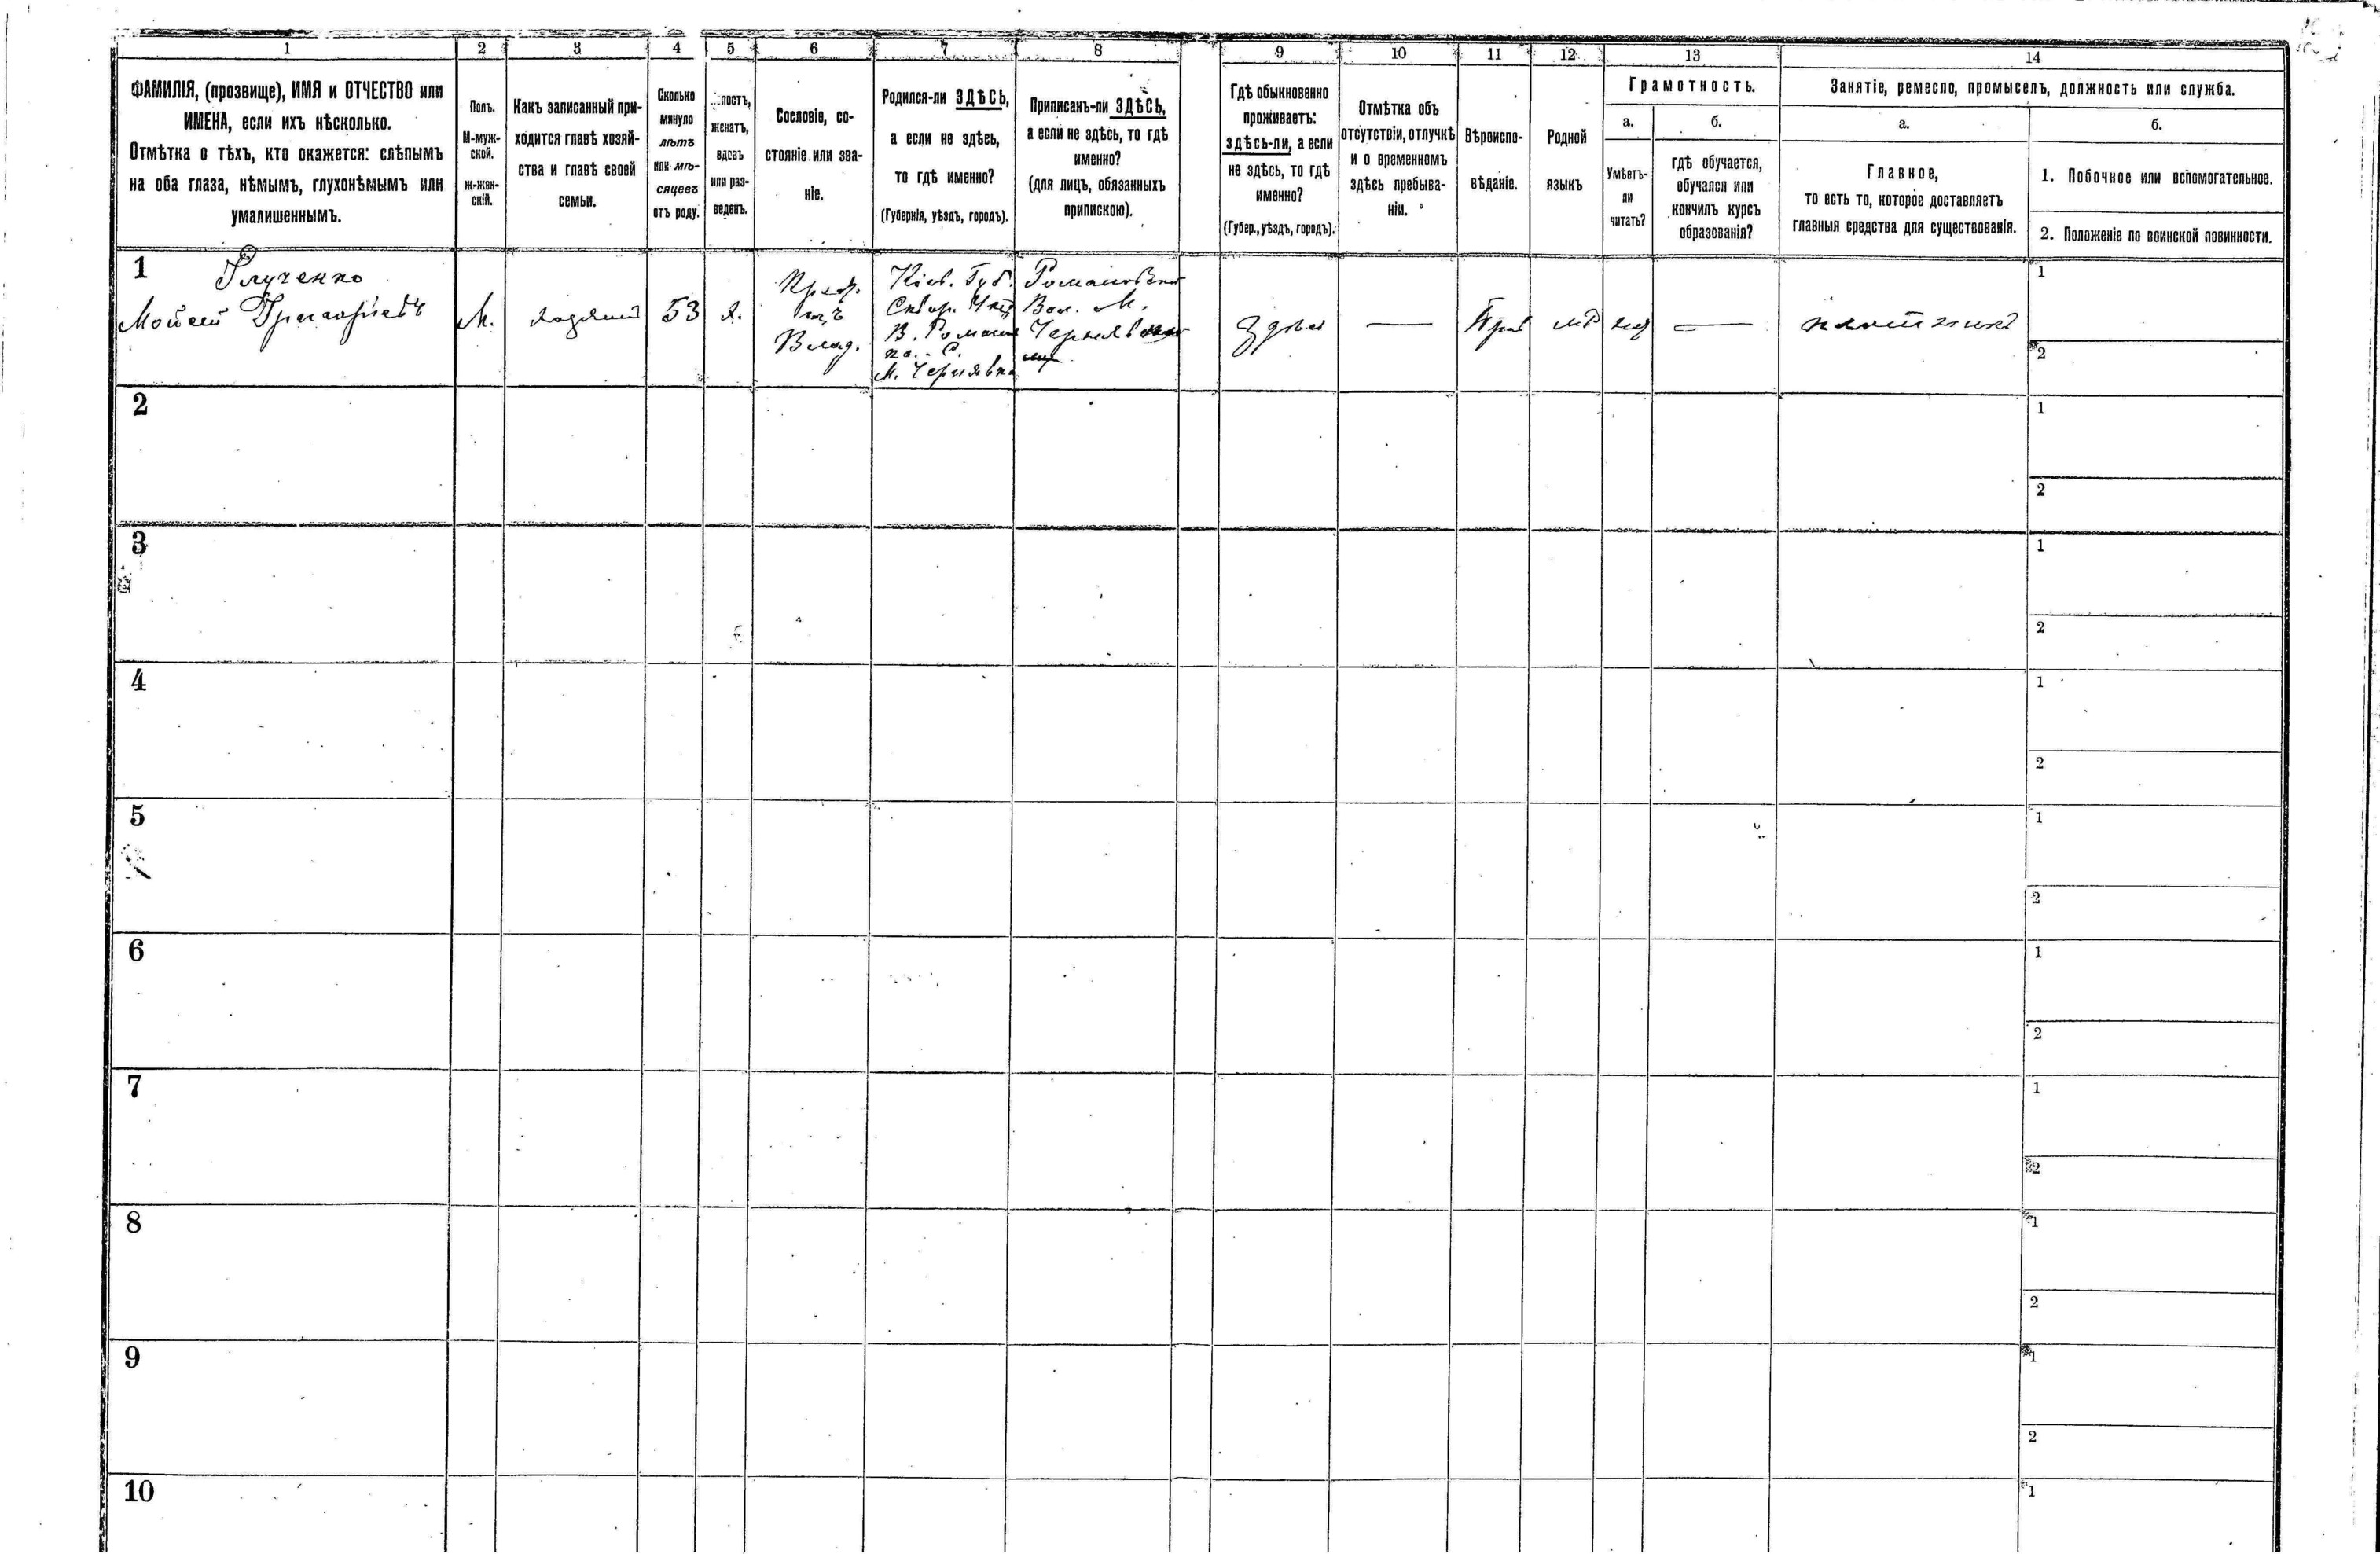 1 2 3 4 5 6 7 8 9 10 11 12 13 14
ФАМИЛІЯ, (прозвище), ИМЯ и ОТЧЕСТВО или
ИМЕНА, если ихъ нѣсколько.
Отмѣтка о тѣхъ, кто окажется: слѣпымъ
на оба глаза, нѣмымъ, глухонѣмымъ или
умалишеннымъ.
Полъ.
М-муж-
ской.
Ж-жен-
скій.
Какъ записанный при-
ходится главѣ хозяй-
ства и главѣ своей
семьи.
Сколько
минуло
лѣтъ
или мѣ-
сяцевъ
отъ роду.
лостъ,
женатъ,
вдовъ
или раз-
веденъ.
Сословіе, со-
стояніе или зва-
ніе.
Родился-ли ЗДѢСЬ,
а если не здѣсь,
то гдѣ именно?
(Губернія, уѣздъ, городъ).
Приписанъ-ли ЗДѢСЬ,
а если не здѣсь, то гдѣ
именно?
(для лицъ, обязанныхъ
припискою).
Гдѣ обыкновенно
проживаетъ:
здѣсь-ли, а если
не здѣсь, то гдѣ
именно?
(Губер., уѣздъ, городъ).
Отмѣтка объ
отсутствіи, отлучкѣ
и о временномъ
здѣсь пребыва-
ніи.
Вѣроиспо-
вѣданіе.
Родной
языкъ
Грамотность.
а.
Умѣетъ-
ли
читать?
б.
гдѣ обучается,
обучался или
кончилъ курсъ
образованія?
Занятіе, ремесло, промыселъ, должность или служба.
а.
Главное,
то есть то, которое доставляетъ
главныя средства для существованія.
б.
1. Побочное или вспомогательное.
2. Положеніе по воинской повинности.
1
Глученко
Мойсей Григорьевъ
М.
хозяинъ
53
Влад.
Кіев. Губ.
Сквир.
В. Романов
ка. С.
М. Чернявка
Романовской
Вол. М.
Здѣсь
—
Прав
мР
—
плотникъ
1
2
2
1
2
3
1
2
4
1
2
5
1
2
6
1
2
7
1
2
8
1
2
9
1
2
10
1